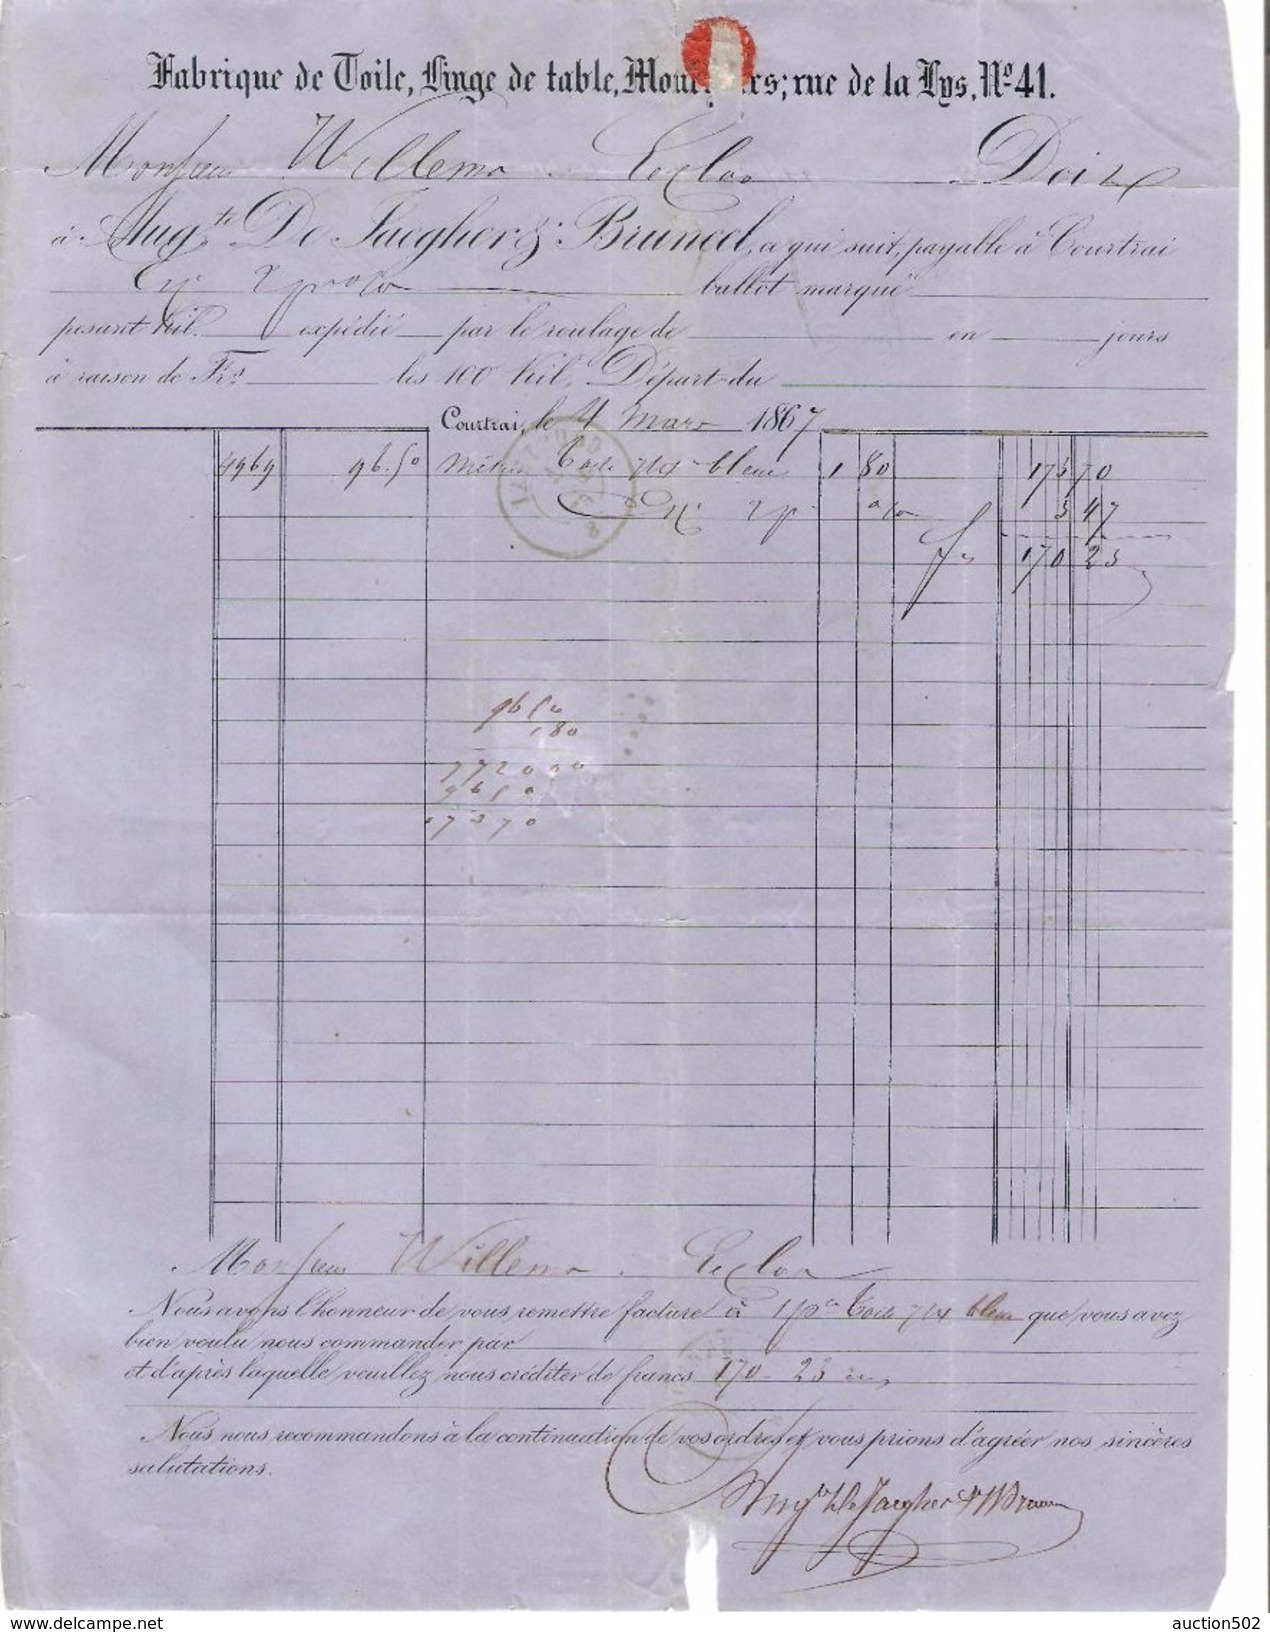 Fabrique de Toile, Linge de table, Mouchoirs; rue de la Lys, Nº 41.
Monsieur Willems. Eecloo Doit
à Augte De Jaegher & Bruneel, ce qui suit, payable à Courtrai
Exp 2 p% ballot marqué
pesant kil. expédié par le roulage de en jours
à raison de Frs les 100 Kil. Départ du
Courtrai, le 4 Mars 1867
4969 96.50 mètres Toile 7/4 bleue 1 80 173 70
2 p % 3 47
fs 170 23
96 50
180
772000
9650
17370
Monsieur Willems. Eecloo
Nous avons l'honneur de vous remettre facture à 1 pce Toile 7/4 bleue que vous avez
bien voulu nous commander par
et d'après laquelle veuillez nous créditer de francs 170 - 23 cs
Nous nous recommandons à la continuation de vos ordres et vous prions d'agréer nos sincères
salutations.
Augte De Jaegher & Bruneel
auction502